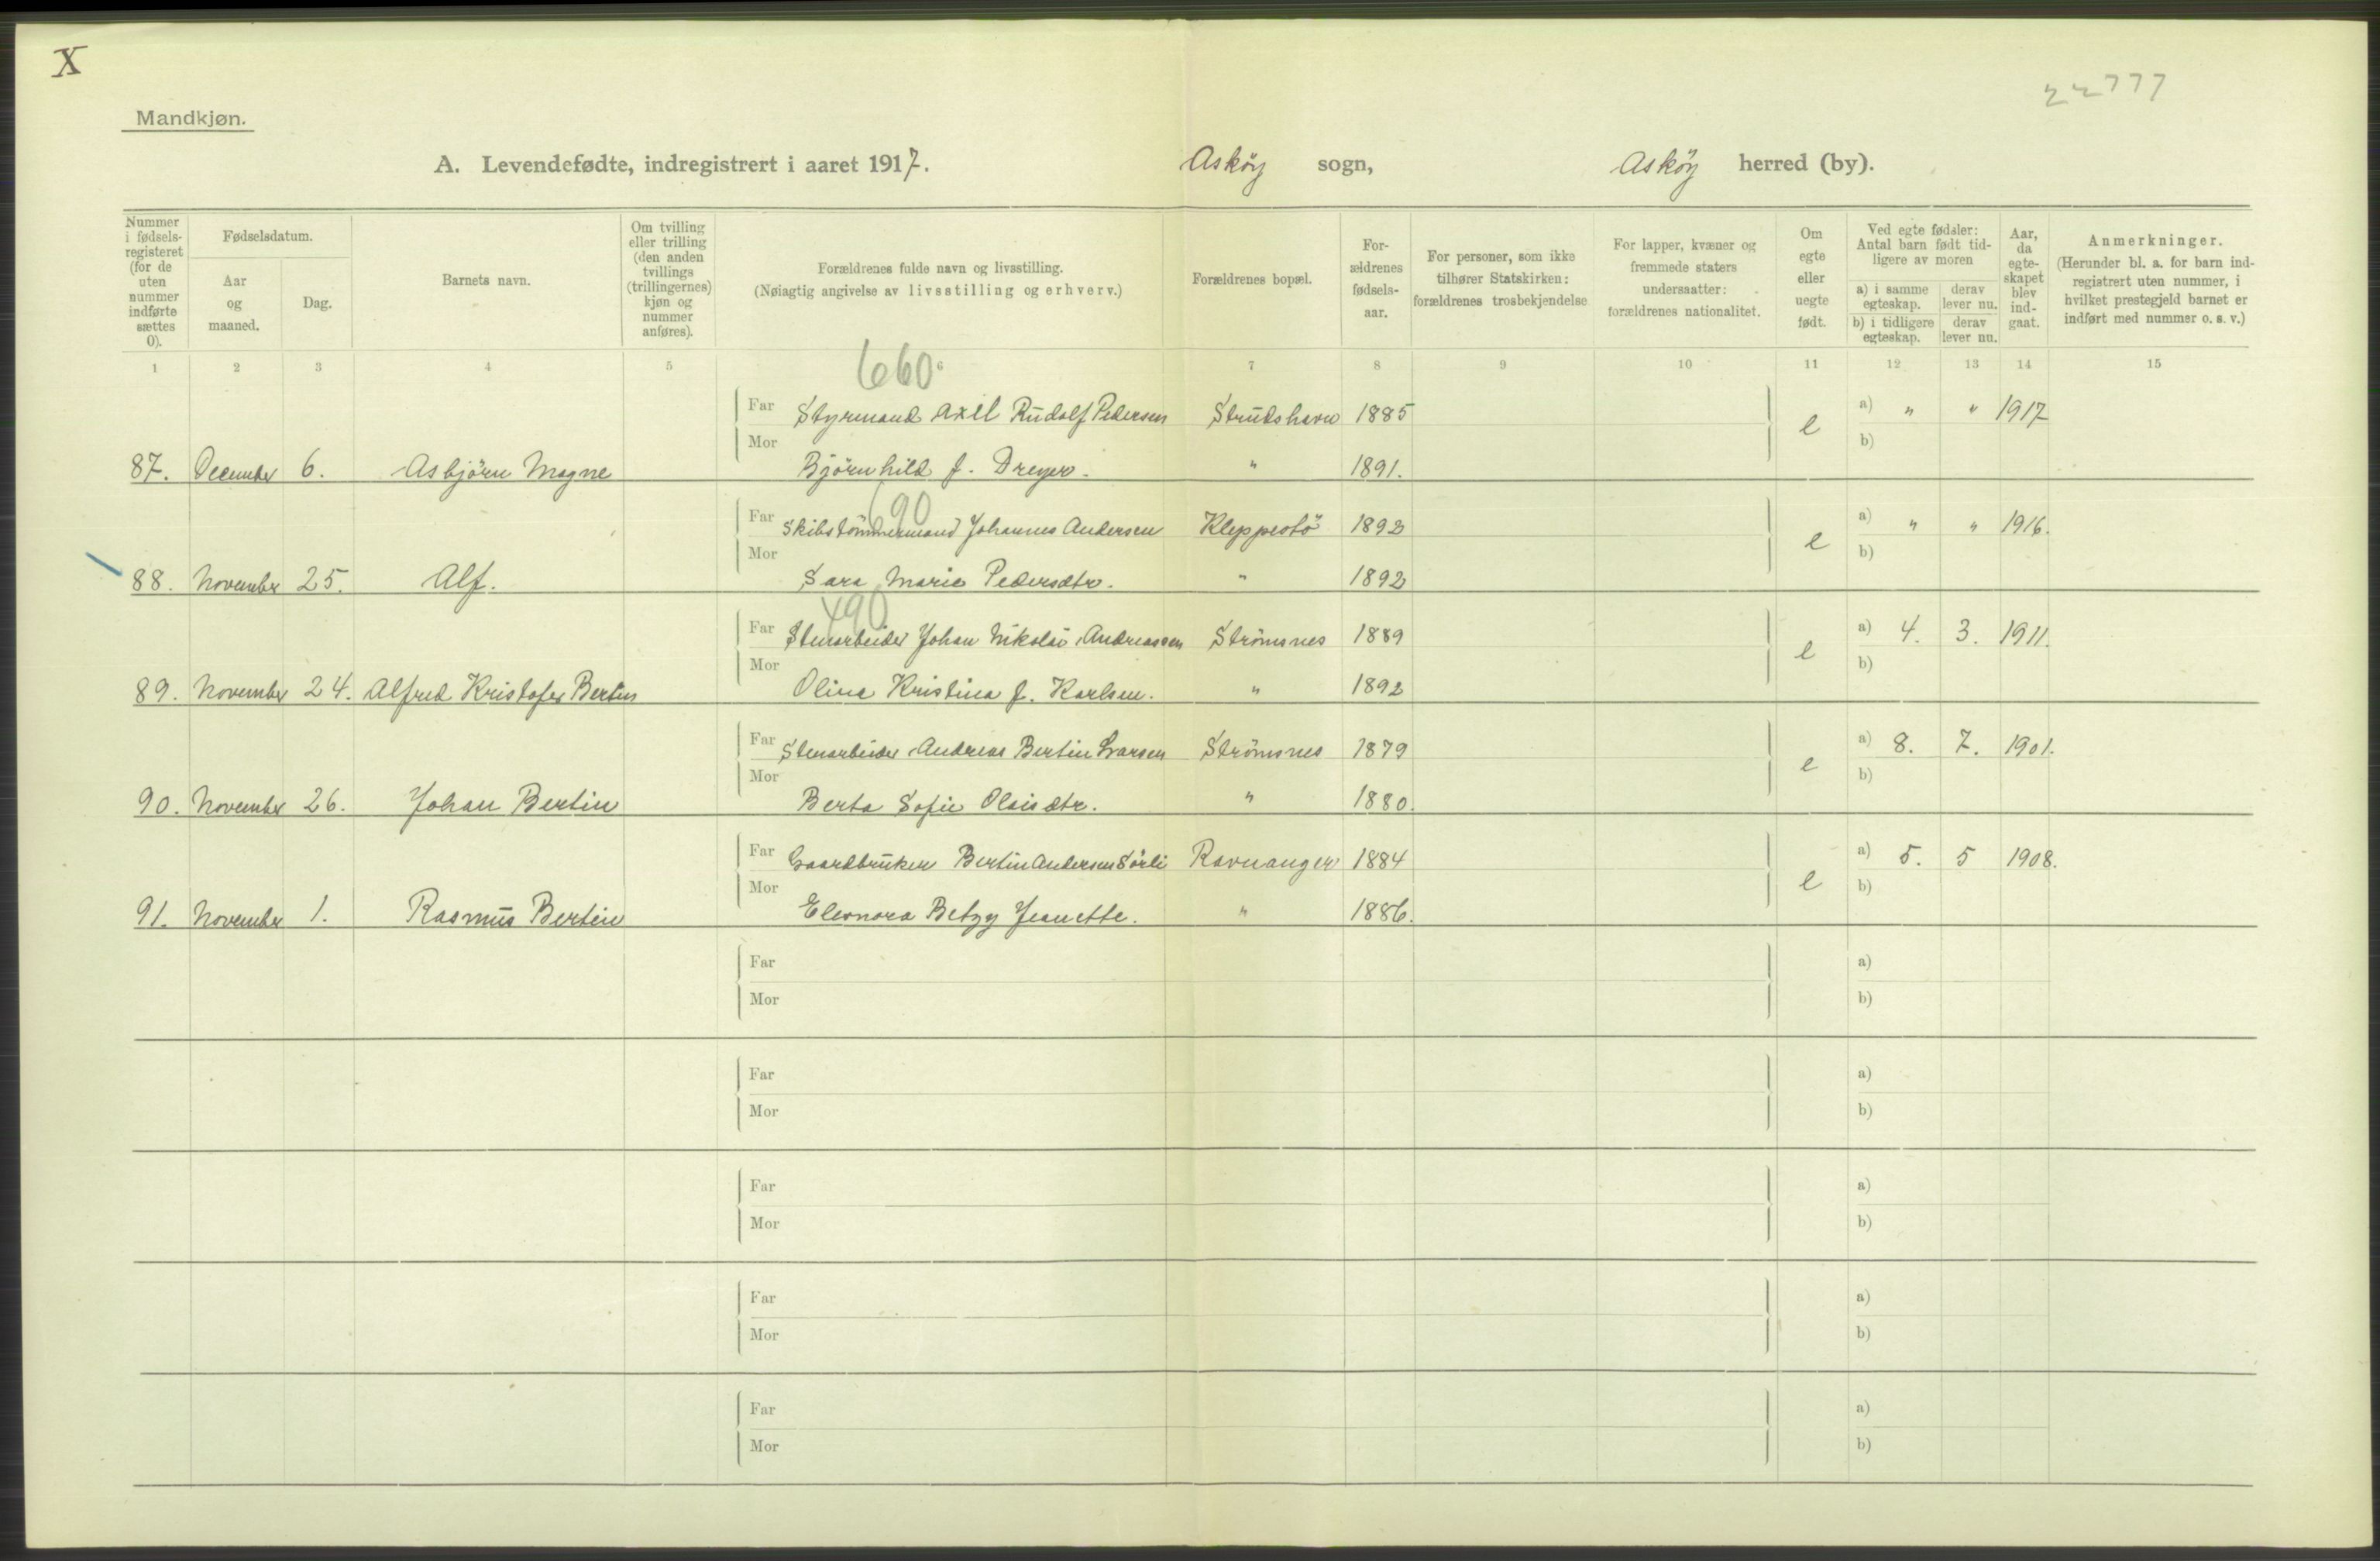 X
22777
Mandkjøn.
A. Levendefødte, indregistrert i aaret 1917. Asköy sogn, Asköy herred (by).
Nummer i fødselsregisteret (for de uten nummer indførte sættes 0).
Fødselsdatum.
Aar og maaned.
Dag.
Barnets navn.
Om tvilling eller trilling (den anden tvillings (trillingernes) kjøn og nummer anføres).
Forældrenes fulde navn og livsstilling.
(Nøiagtig angivelse av livsstilling og erhverv.)
Forældrenes bopæl.
For-ældrenes fødsels-aar.
For personer, som ikke tilhører Statskirken: forældrenes trosbekjendelse
For lapper, kvæner og fremmede staters undersaatter: forældrenes nationalitet.
Om egte eller uegte født.
Ved egte fødsler: Antal barn født tid-ligere av moren
a) i samme egteskap. derav lever nu.
b) i tidligere egteskap. derav lever nu.
Aar, da egte-skapet blev ind-gaat.
Anmerkninger.
(Herunder bl. a. for barn ind-registrert uten nummer, i hvilket prestegjeld barnet er indført med nummer o. s. v.)
1 2 3 4 5 6 7 8 9 10 11 12 13 14 15
660
Far Styrmand Axel Rudolf Pedersen Strudshavn 1885 e a) " " 1917
Mor b)
87. December 6. Asbjörn Magne Björnhild f. Dreyer. " 1891.
690
Far Skibstömmermand Johannes Andersen Kleppestö 1892 e a) " " 1916.
Mor b)
88. November 25. Alf. Sara Marie Pedersdtr. " 1892
490
Far Stenarbeider Johan Nikolai Andreassen Strömsnes 1889 e a) 4. 3. 1911.
Mor b)
89. November 24. Alfred Kristofer Bertin Olina Kristina f. Karlsen. " 1892
Far Stenarbeider Andreas Bertin Larsen Strömsnes 1879 e a) 8. 7. 1901.
Mor b)
90. November 26. Johan Bertin Berta Sofie Olaisdtr. " 1880.
Far Gaardbruker Bertin Andersen Sörli Ravnanger 1884 e a) 5. 5 1908.
Mor b)
91. November 1. Rasmus Bertin Eleonora Betzy Jeanette. " 1886.
Far a)
Mor b)
Far a)
Mor b)
Far a)
Mor b)
Far a)
Mor b)
Far a)
Mor b)